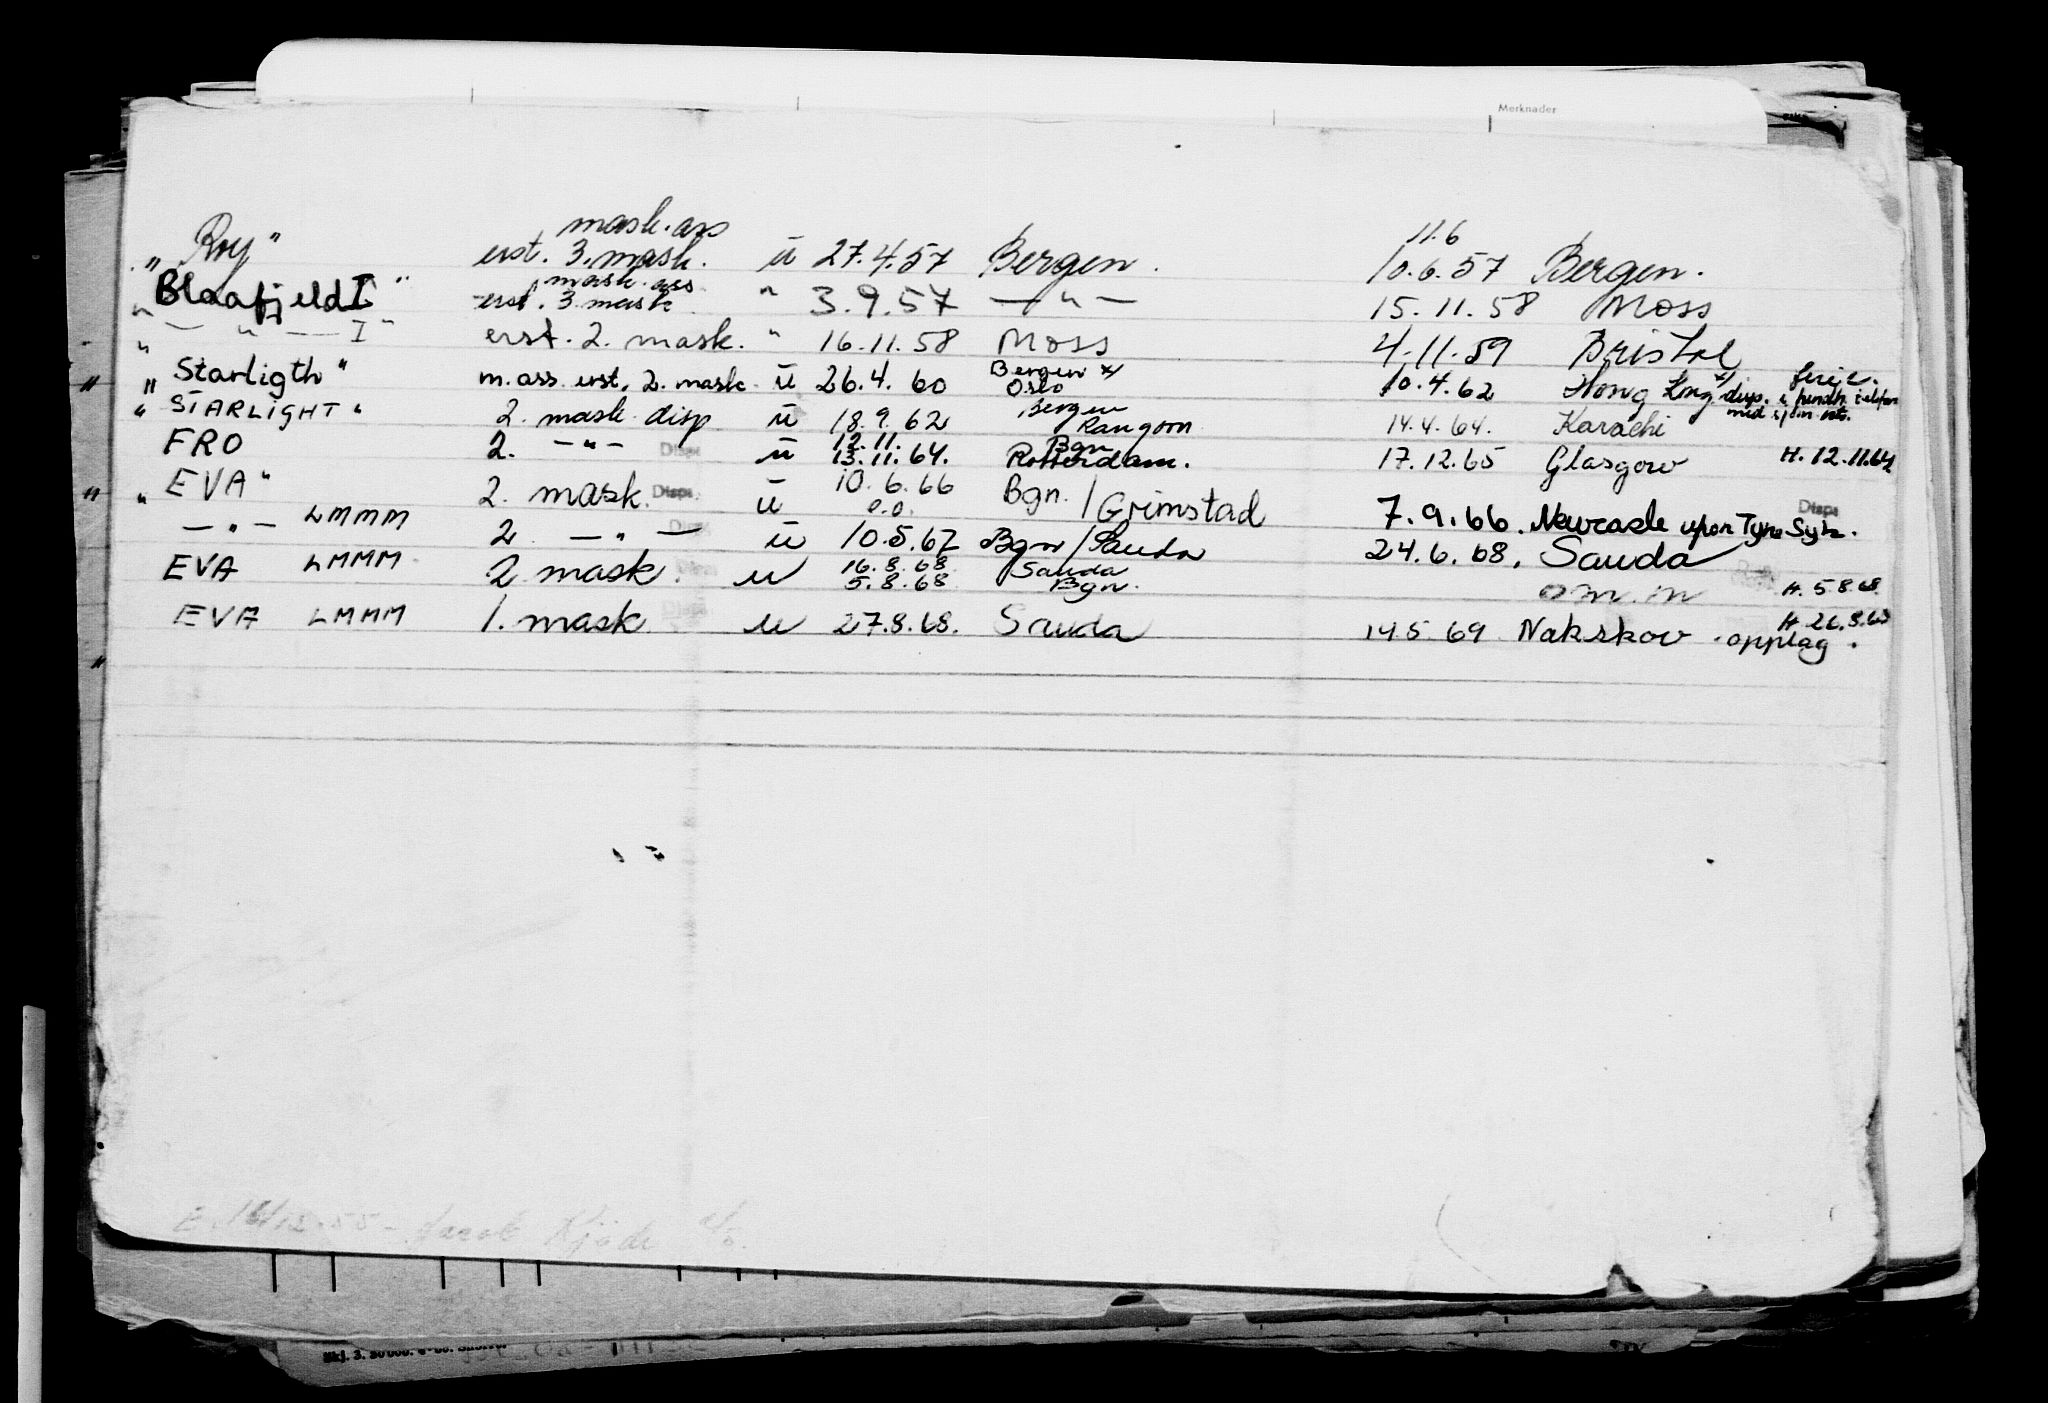 Merknader
mask. ass 11.6
„ Roy " erst. 3. mask. ü 27.4.57 Bergen. 10.6.57 Bergen.
mask. ass
Blaafjeld I " erst. 3. mask " 3.9.57 — " — 15.11.58 Moss
" — " — I " erst. 2. mask. " 16.11.58 Moss 4.11.59 Bristol
„ Starligth " m. ass. erst. 2. mask ü 26.4.60 Bergen x/ Oslo 10.4.62 Hong Kong x/ disp. ferie.
" STARLIGHT " 2. mask. disp ü 18.9.62 Bergen Rangoon 14.4.64. Karachi
FRO 2. — " — Disps ü 12.11. 13.11.64. Bgn Rotterdam. 17.12.65 Glasgow H. 12.11.64
„ EVA " 2. mask. Disps. ü 10.6.66 o.o. Bgn. / Grimstad 7.9.66. Newcastle upon Tyne Syk. Disps
— " — LMMM 2. — " — ü 10.5.67 Bgn / Sauda 24.6.68. Sauda
EVA LMMM 2 mask. u 16.8.68 5.8.68 Sauda Bgn. o m. m H. 5.8.68.
EVA LMMM 1. mask. u 27.8.68. Sauda 14.5.69 Nakskov. opplag. H. 26.8.68